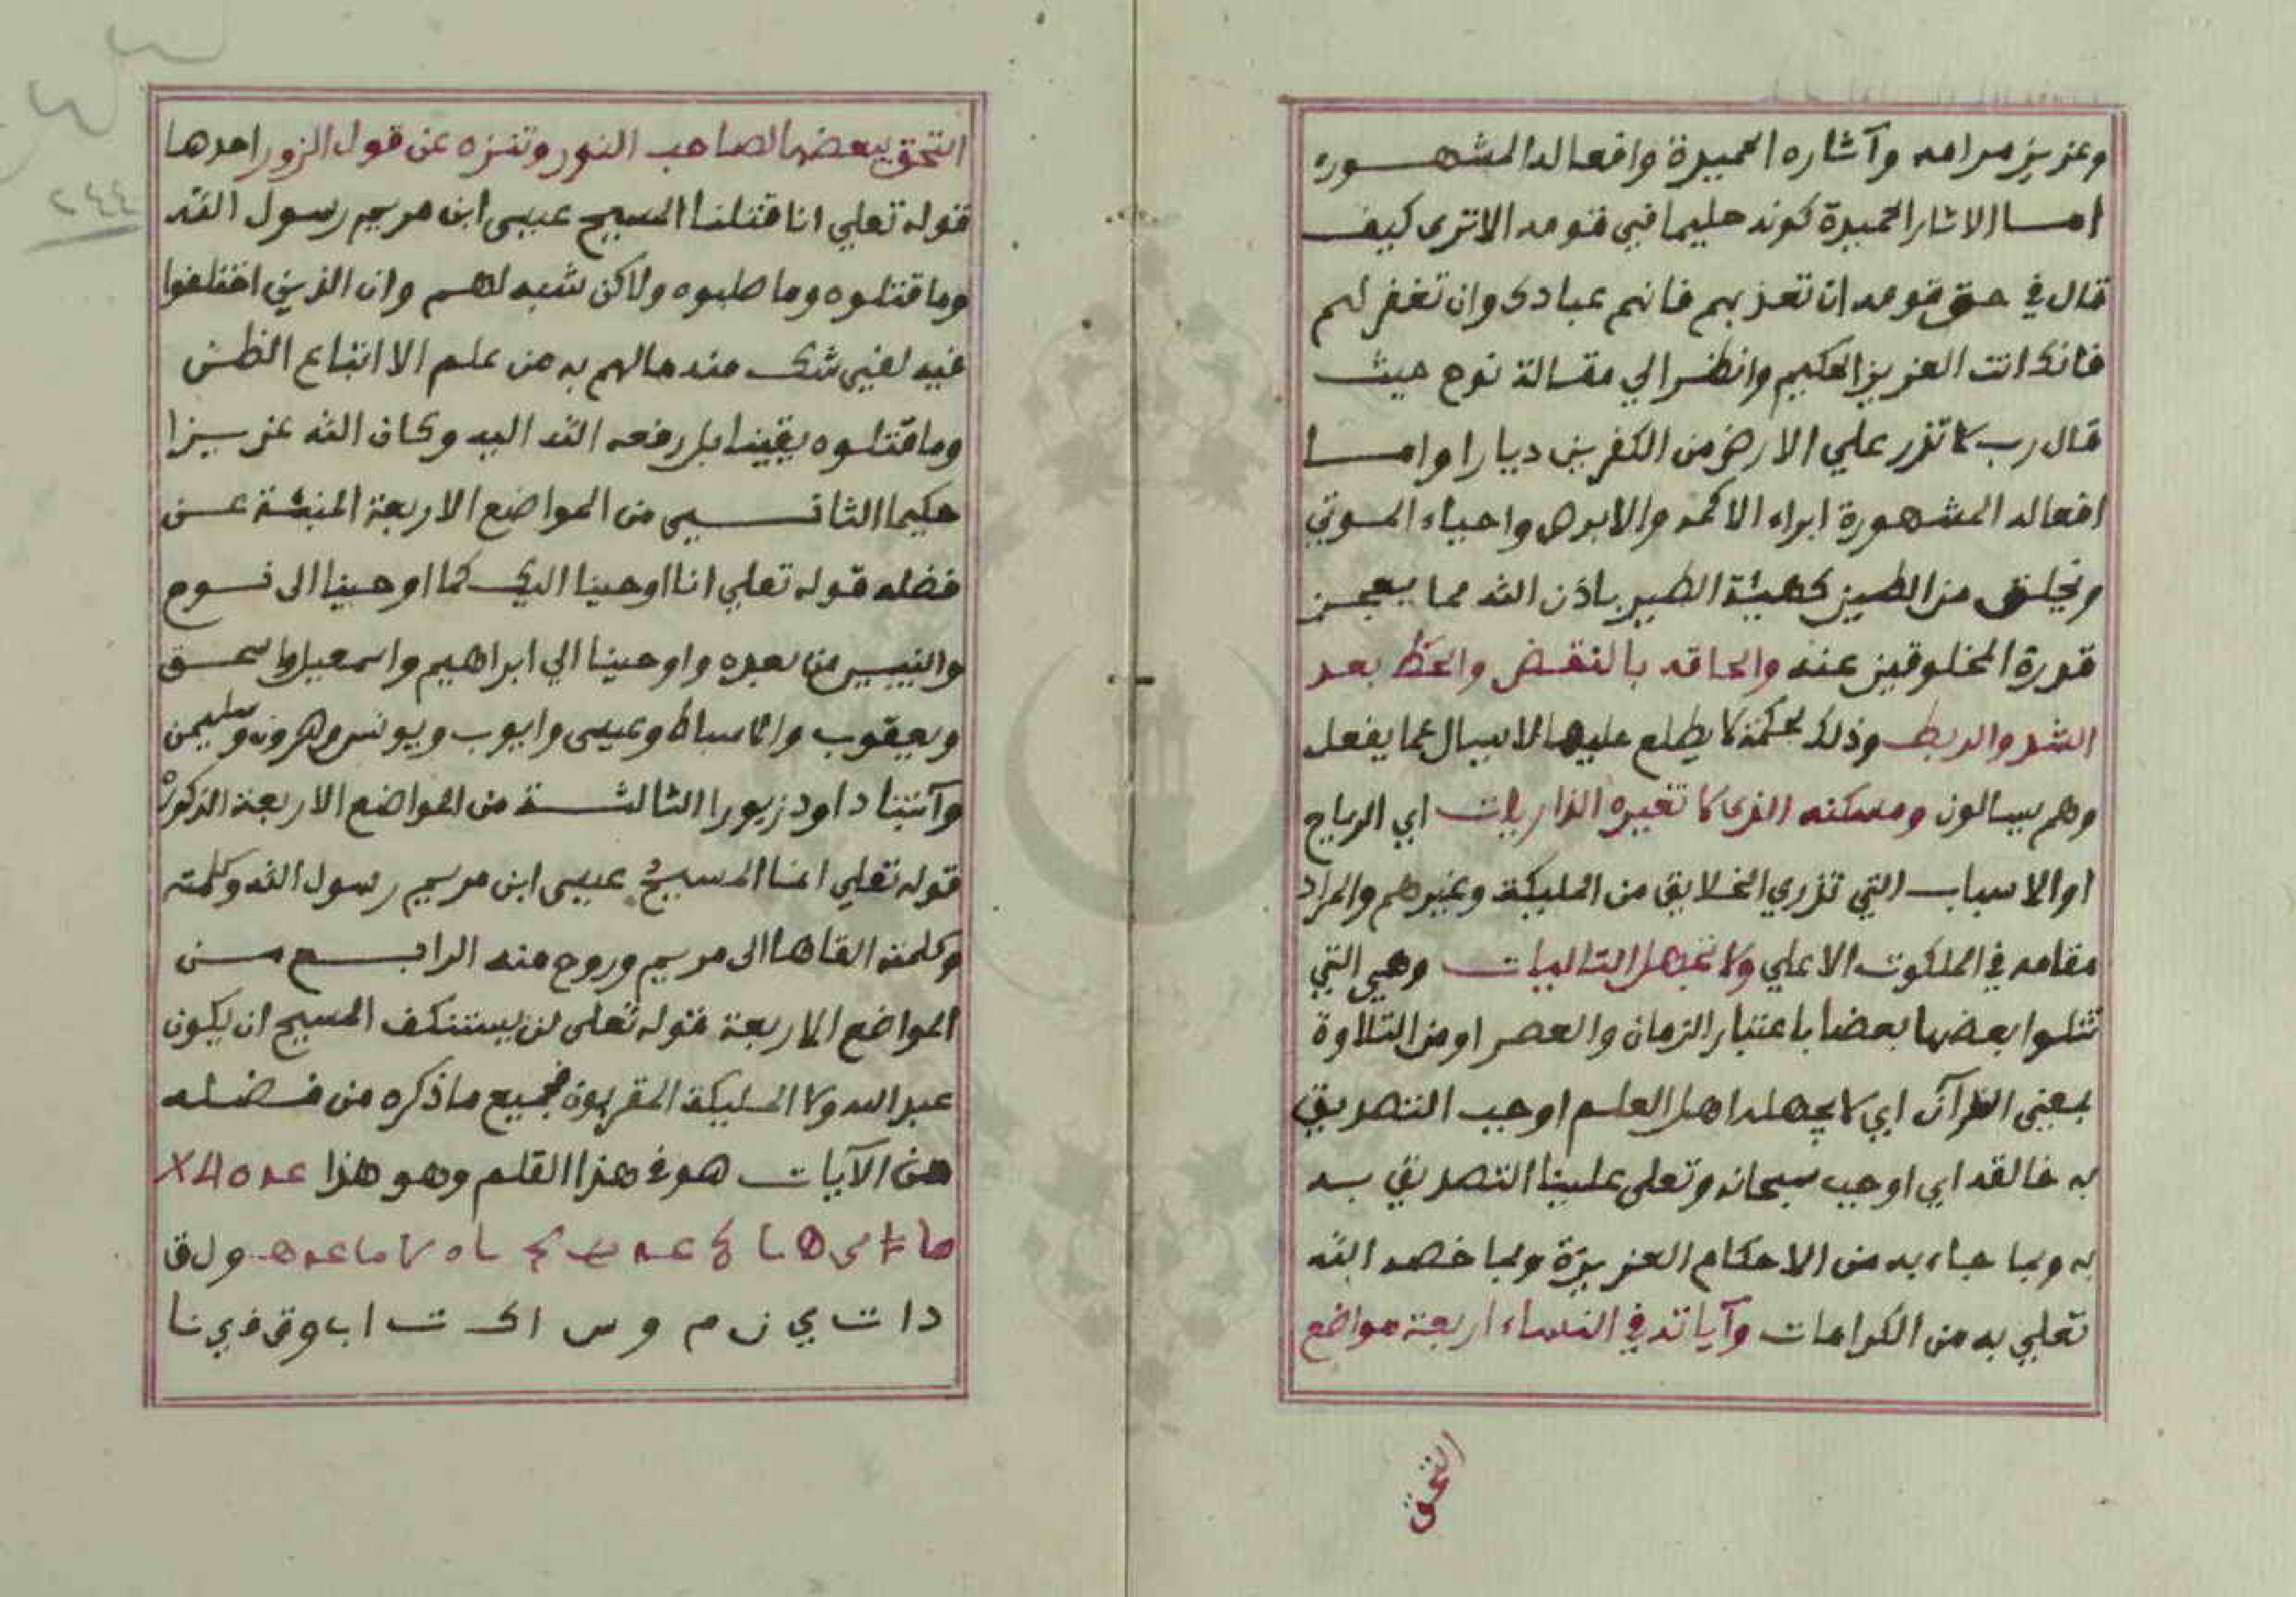 وعزيز مرامه وآثاره الحميدة وافعاله المشهوره
اما الاثار الحميدة كونه حليما في قومه الا ترى كيف
قال في حق قومه ان تعذبهم فانهم عبادك وان تغفر لهم
فانك انت العزيز الحكيم وانظر الي مقالة نوح حيث
قال رب لا تذر علي الارض من الكفرين ديارا واما
افعاله المشهورة ابراء الاكمه والابرص واحياء الموتي
ويخلق من الطين كهيئة الطير باذن الله مما يعجز
قدرة المخلوقين عنه والحاقه بالنقض والحط بعد
الشد والربط وذلك لحكمة لا يطلع عليها لا يسال عما يفعل
وهم يسالون ومسكنه الذى لا تغيره الذاريات اي الرياح
او الاسباب التي تذري الخلايق من المليكة وغيرهم والمراد
مقامه في الملكوت الاعلي ولا تجهل التاليات وهي التي
تتلوا بعضها بعضا باعتبار الزمان والعصر او من التلاوة
بمعنى القرآن اي لا يجهله اهل العلم اوجب التصديق
به خالقه اي اوجب سبحانه وتعلى علينا التصديق به
به وبما جاء به من الاحكام العزيزة وبما خصه الله
تعلي به من الكرامات وآياته في النساء اربعة مواضع
التحق
التحق ببعضها لصاحب النور وتنزه عن قول الزور احدها
قوله تعلي انا قتلنا المسيح عيسى ابن مريم رسول الله
وما قتلوه وما صلبوه ولاكن شبه لهم وان الذين اختلفوا
فيه لفي شك منه مالهم به من علم الا اتباع الظن
وما قتلوه يقينا بل رفعه الله اليه وكان الله عزيزا
حكيما الثاني من المواضع الاربعة المنبئة عن
فضله قوله تعلي انا اوحينا اليك كما اوحينا الى نوح
والنبيين من بعده واوحينا الي ابراهيم واسمعيل واسحق
ويعقوب والاسباط وعيسى وايوب ويونس وهرون وسليمن
وآتينا داود زبورا الثالثة من المواضع الاربعة المذكورة
قوله تعلي انما المسيح عيسى ابن مريم رسول الله وكلمته
وكلمته القاها الى مريم وروح منه الرابع من
المواضع الاربعة قوله تعلى لن يستنكف المسيح ان يكون
عبد الله ولا المليكة المقربون فجميع ما ذكره من فضله
من الآيات هو في هذا القلم وهو هذا
ول ق
د ا ت ي ن م و س ا ك ت ا ب و ق ف ي ن ا
٢٤٤